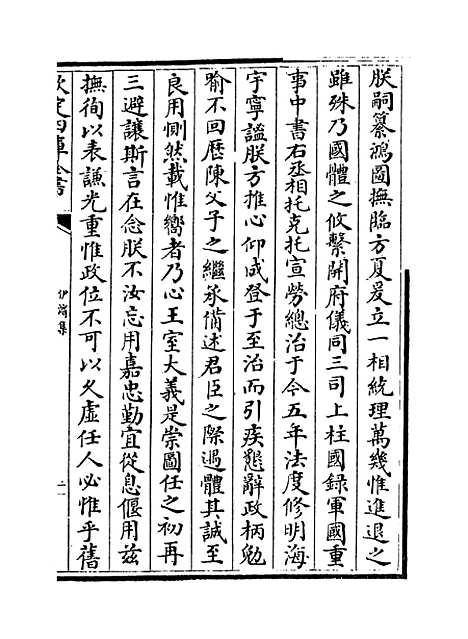 朕嗣纂鴻圖撫臨方夏爰立一相統理萬幾惟進退之
雖殊乃國體之攸繫開府儀同三司上柱國録軍國重
事中書右丞相托克托宣勞總治于今五年法度修明海
宇寧謐朕方推心仰成登于至治而引疾懇辭政柄勉
喻不回歷陳父子之繼承備述君臣之際遇體其誠至
良用惻然載惟嚮者乃心王室大義是崇圖任之初再
三避讓斯言在念朕不汝忘用嘉忠勤宜從息偃用兹
撫徇以表謙光重惟政位不可以久虚任人必惟乎舊
欽定四庫全書
伊濱集
二